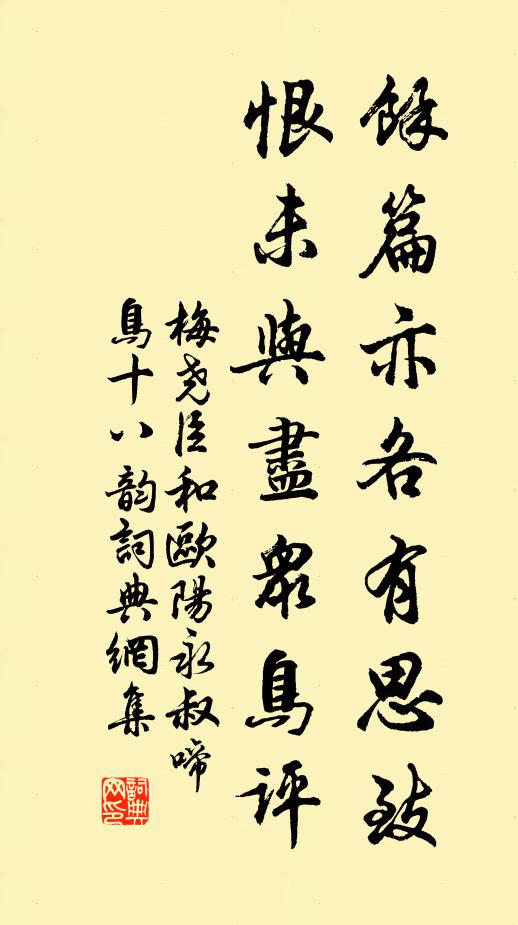 餘篇亦各有思致
恨未與盡衆鳥評
梅堯臣和歐陽永叔啼
鳥十八韵詞典網集
詞典
网印